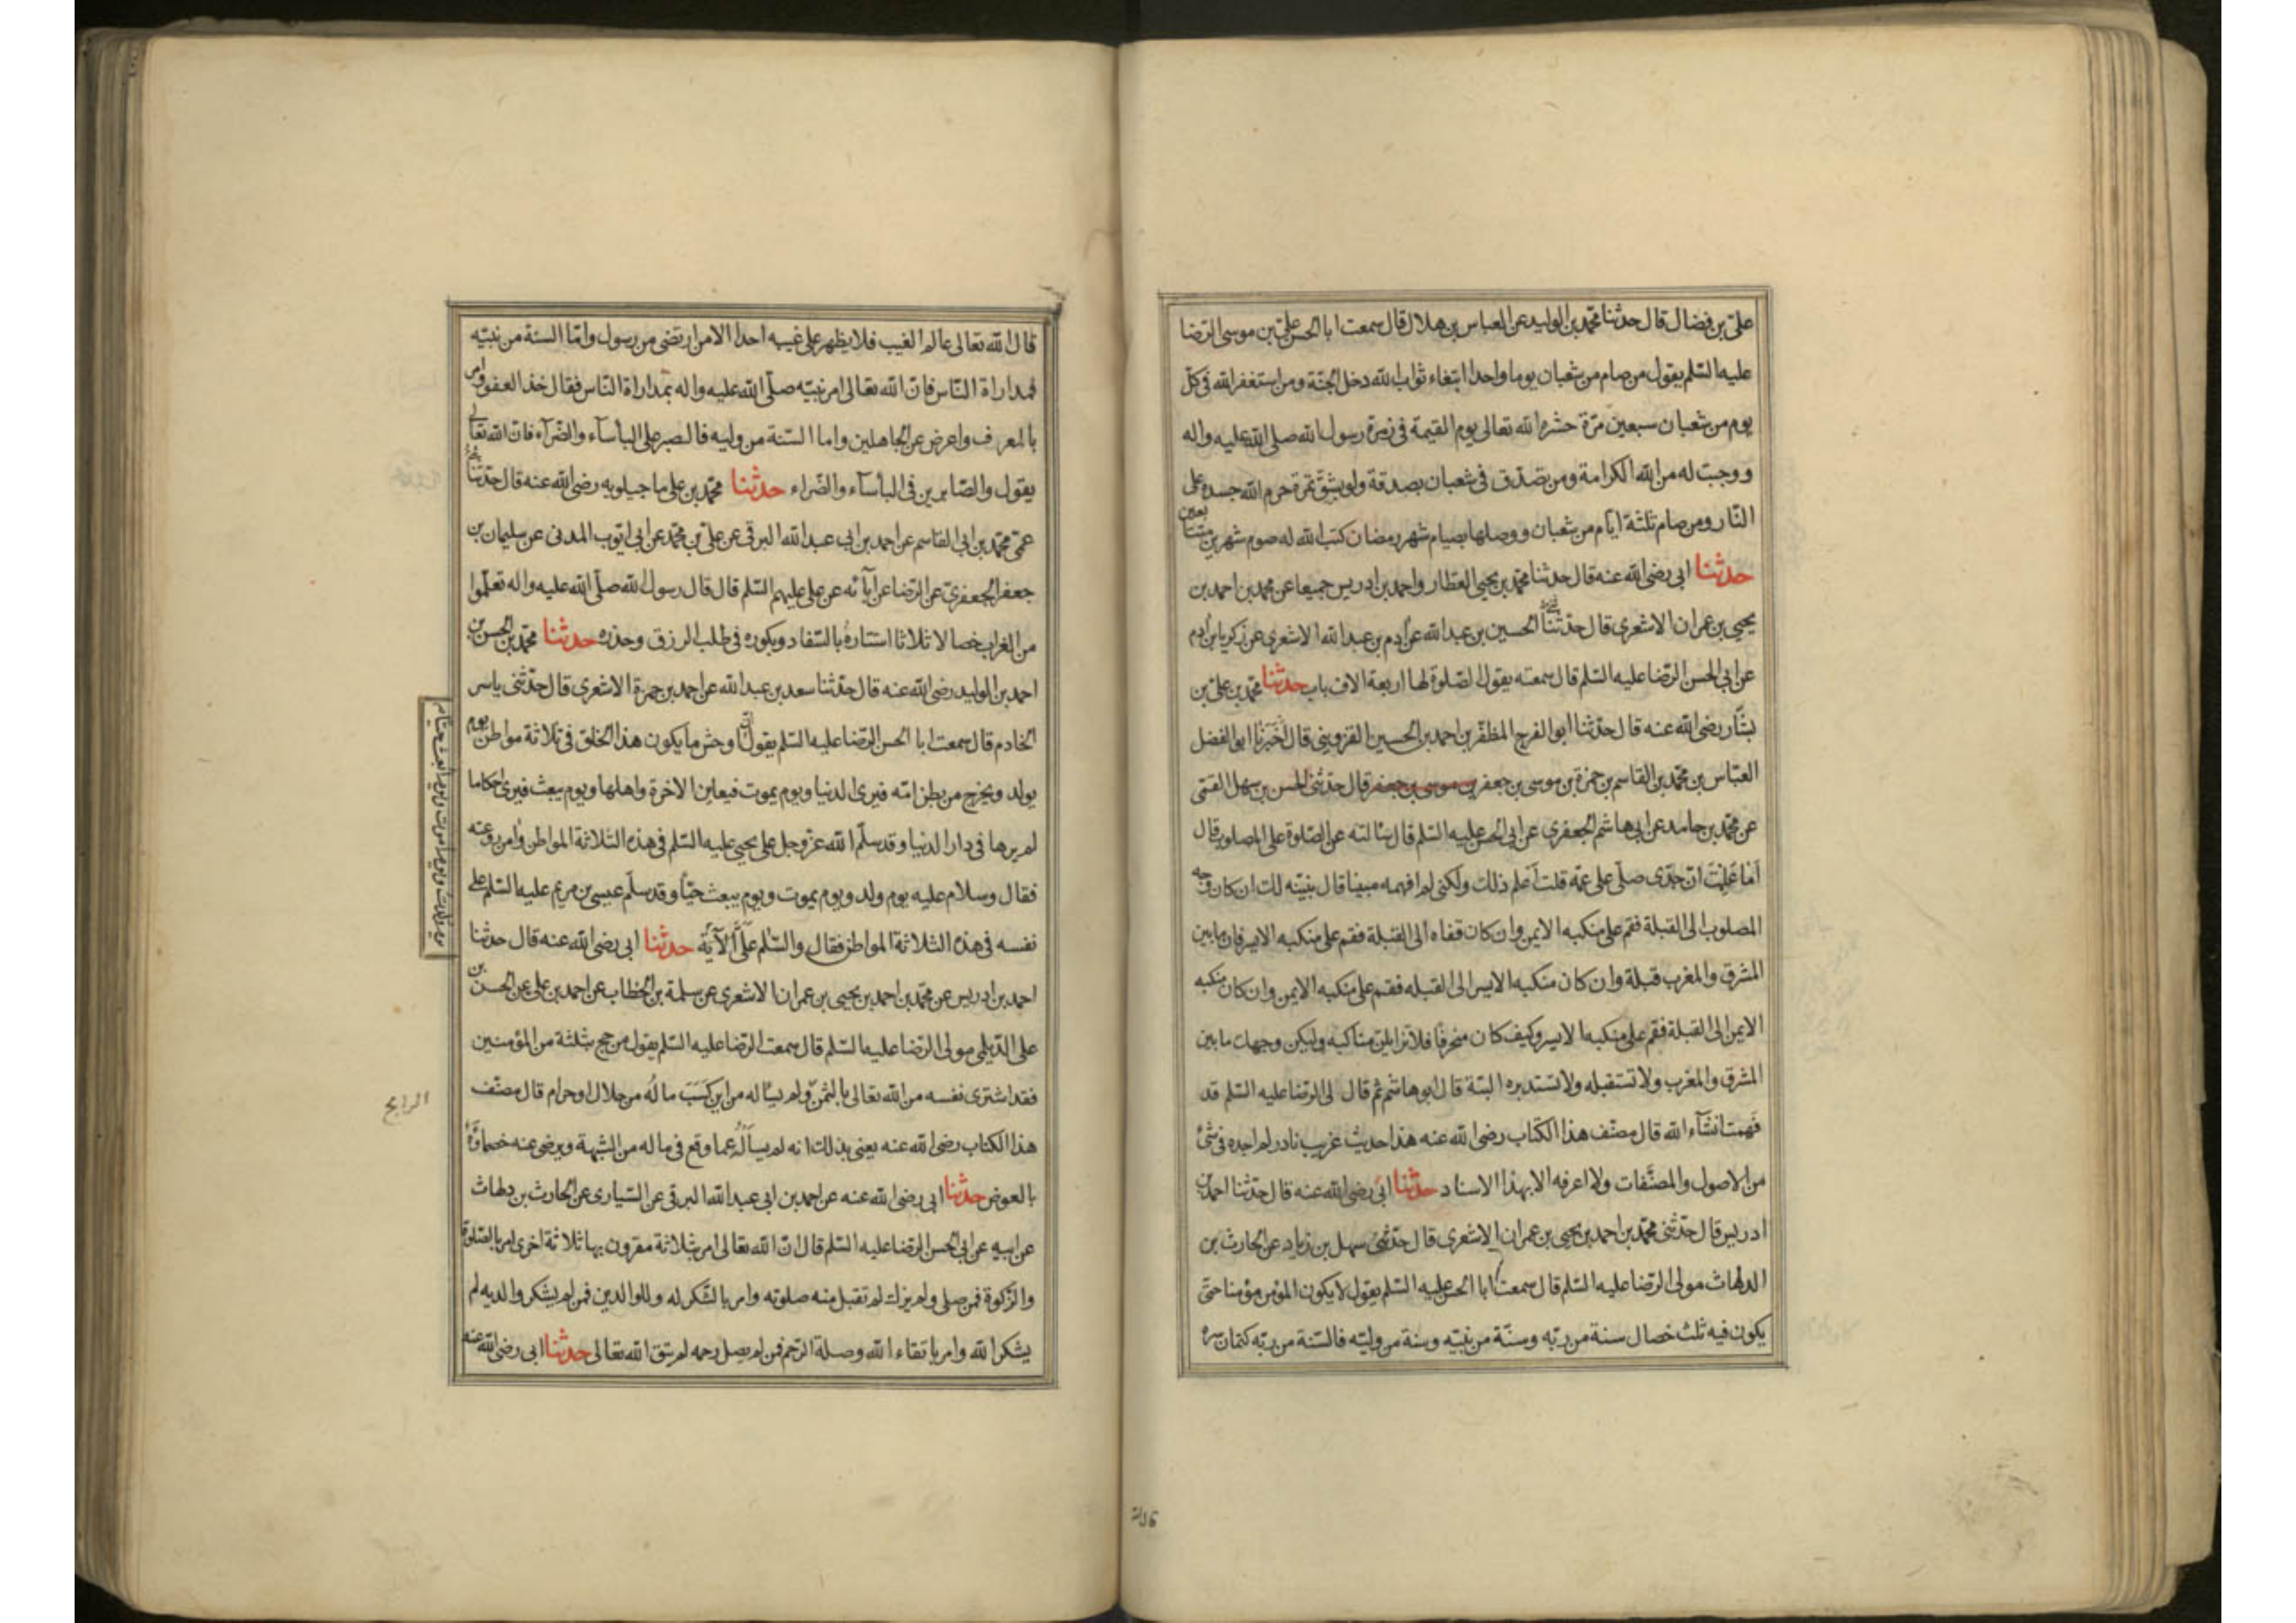 علي بن فضال قال حدثنا محمد بن الوليد عن العباس بن هلال قال سمعت ابا الحسن علي بن موسى الرضا
عليه السلم يقول من صام من شعبان يوما واحدا ابتغاء ثواب الله دخل الجنة ومن استغفر الله في كل
يوم من شعبان سبعين مرة حشره الله تعالى يوم القيمة في زمرة رسول الله صلى الله عليه واله
ووجبت له من الله الكرامة ومن تصدق في شعبان بصدقة ولو بشق تمرة حرم الله جسده على
النار ومن صام ثلثة ايام من شعبان ووصلها بصيام شهر رمضان كتب الله له صوم شهرين متتابعين
حدثنا ابي رضي الله عنه قال حدثنا محمد بن يحيى العطار واحمد بن ادريس جميعا عن محمد بن احمد بن
يحيى بن عمران الاشعري قال حدثنا الحسين بن عبد الله عن آدم بن عبد الله الاشعري عن زكريا بن آدم
عن ابي الحسن الرضا عليه السلم قال سمعته يقول الصلوة لها اربعة الاف باب حدثنا محمد بن علي بن
بشار رضي الله عنه قال حدثنا ابو الفرج المظفر بن احمد بن الحسين القزويني قال اخبرنا ابو الفضل
العباس بن محمد بن القاسم بن حمزة بن موسى بن جعفر بن موسى بن جعفر قال حدثني الحسن بن سهل القمي
عن محمد بن حامد عن ابي هاشم الجعفري عن ابي الحسن عليه السلم قال سالته عن الصلوة على المصلوب قال
اما علمت ان جدي صلى على عمه قلت اعلم ذلك ولكني لم افهمه مبينا قال نبينه لك ان كان وجه
المصلوب الى القبلة فقم على منكبه الايمن وان كان قفاه الى القبلة فقم على منكبه الايسر فان ما بين
المشرق والمغرب قبلة وان كان منكبه الايسر الى القبله فقم على منكبه الايمن وان كان منكبه
الايمن الى القبلة فقم على منكبه الايسر وكيف كان منحرفا فلا تزايلن مناكبه وليكن وجهك ما بين
المشرق والمغرب ولا تستقبله ولا تستدبره البتة قال ابو هاشم ثم قال لي الرضا عليه السلم قد
فهمت انشاء الله قال مصنف هذا الكتاب رضي الله عنه هذا حديث غريب نادر لم اجده في شئ
من الاصول والمصنفات ولا اعرفه الا بهذا الاسناد حدثنا ابي رضي الله عنه قال حدثنا احمد بن
ادريس قال حدثني محمد بن احمد بن يحيى بن عمران الاشعري قال حدثني سهل بن زياد عن الحارث بن
الدلهاث مولى الرضا عليه السلم قال سمعت ابا الحسن عليه السلم يقول لا يكون المؤمن مؤمنا حتى
يكون فيه ثلث خصال سنة من ربه وسنة من نبيه وسنة من وليه فالسنة من ربه كتمان سره
قال الله تعالى عالم الغيب فلا يظهر على غيبه احدا الا من ارتضى من رسول واما السنة من نبيه
فمداراة الناس فان الله تعالى امر نبيه صلى الله عليه واله بمداراة الناس فقال خذ العفو وامر
بالمعرف واعرض عن الجاهلين واما السنة من وليه فالصبر على البأساء والضراء فان الله تعالى
يقول والصابرين في البأساء والضراء حدثنا محمد بن علي ماجيلويه رضي الله عنه قال حدثنا
عمي محمد بن ابي القاسم عن احمد بن ابي عبد الله البرقي عن علي بن محمد عن ابي ايوب المدني عن سليمان بن
جعفر الجعفري عن الرضا عن آبائه عن علي عليهم السلم قال قال رسول الله صلى الله عليه واله تعلموا
من الغراب خصالا ثلاثا استتاره بالسفاد وبكوره في طلب الرزق وحذره حدثنا محمد بن الحسن بن
احمد بن الوليد رضي الله عنه قال حدثنا سعد بن عبد الله عن احمد بن حمزة الاشعري قال حدثني ياسر
الخادم قال سمعت ابا الحسن الرضا عليه السلم يقول ان اوحش ما يكون هذا الخلق في ثلاثة مواطن يوم
يولد ويخرج من بطن امه فيرى الدنيا ويوم يموت فيعاين الاخرة واهلها ويوم يبعث فيرى احكاما
لم يرها في دار الدنيا وقد سلم الله عز وجل على يحيى عليه السلم في هذه الثلاثة المواطن وامن روعته
فقال وسلام عليه يوم ولد ويوم يموت ويوم يبعث حيا وقد سلم عيسى بن مريم عليه السلم على
نفسه في هذه الثلاثة المواطن فقال والسلم علي الآية حدثنا ابي رضي الله عنه قال حدثنا
احمد بن ادريس عن محمد بن احمد بن يحيى بن عمران الاشعري عن سلمة بن الخطاب عن احمد بن علي عن الحسن بن
علي الديلمي مولى الرضا عليه السلم قال سمعت الرضا عليه السلم يقول من حج بثلثة من المؤمنين
فقد اشترى نفسه من الله تعالى بالثمن ولم يسأله من اين كسب ماله من حلال او حرام قال مصنف
هذا الكتاب رضي الله عنه يعني بذلك انه لم يسأله عما وقع في ماله من الشبهة ويرضى عنه خصماؤه
بالعوض حدثنا ابي رضي الله عنه عن احمد بن ابي عبد الله البرقي عن السياري عن الحارث بن دلهاث
عن ابيه عن ابي الحسن الرضا عليه السلم قال ان الله تعالى امر بثلاثة مقرون بها ثلاثة اخرى امر بالصلوة
والزكوة فمن صلى ولم يزك لم تقبل منه صلوته وامر بالشكر له وللوالدين فمن لم يشكر والديه لم
يشكر الله وامر باتقاء الله وصلة الرحم فمن لم يصل رحمه لم يتق الله تعالى حدثنا ابي رضي الله عنه
يوم ولدت ويوم اموت ويوم ابعث حيا
الرابح